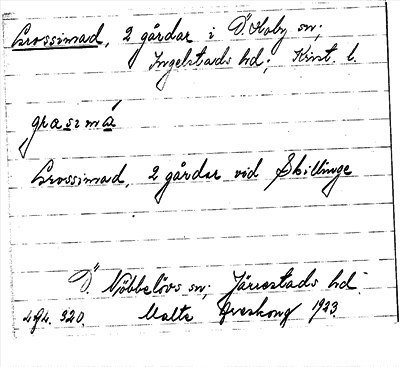 Grossimad, 2 gårdar i Ö. Hoby sn;
Ingelstads hd; Krist. l.
graszmá
Grossimad, 2 gårdar vid Skillinge
Ö. Nöbbelövs sn; Järrestads hd.
Malte Areskoug 1923.